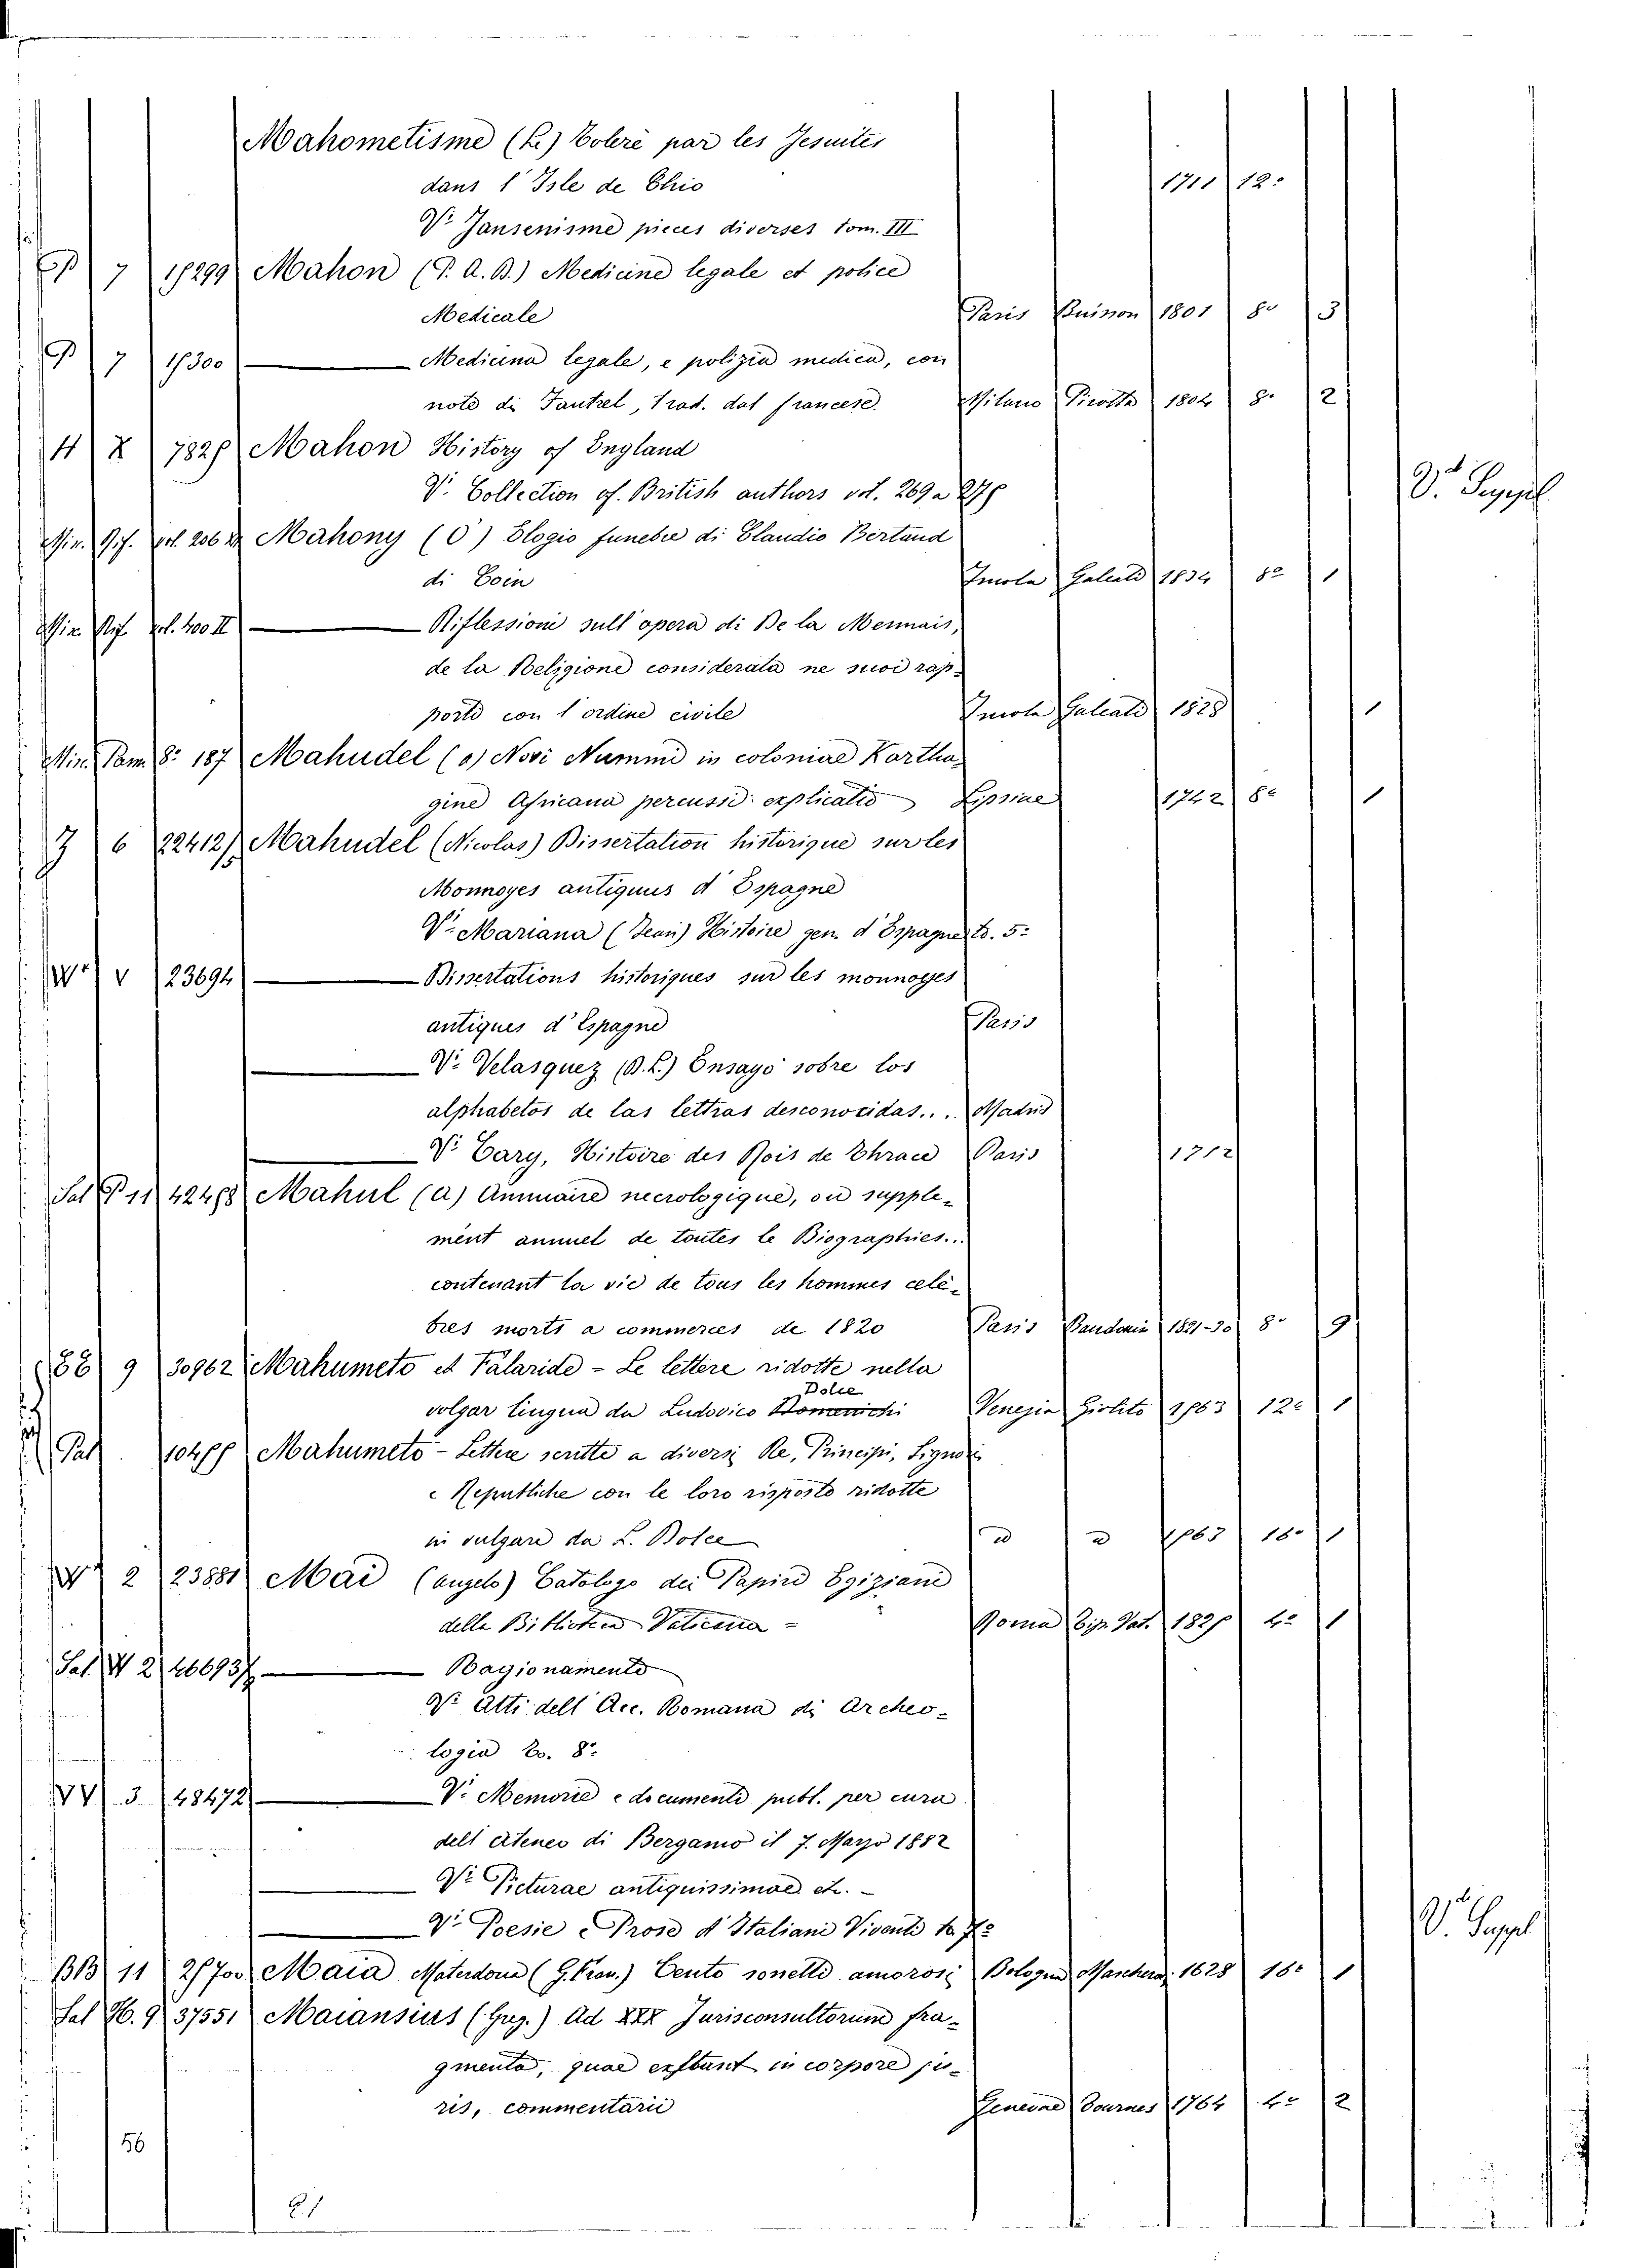 Mahometisme (Le) toleré par les Jesuites
dans l'Isle de Chio 1711 12º
Vi Jansenisme pieces diverses tom. III
P 7 15299 Mahon (P. A. B.) Medicine legale et police
Medicale Paris Buisson 1801 8º 3
P 7 15300 Medicina legale, e polizia medica, con
note di Fantzel, trad. dal francese. Milano Pirotta 1804 8º 2
H X 7825 Mahon History of England
V. Collection of. British authors vol. 269 a 275 Vi Suppl
Min. Gif. vol. 206 Mahony (O') Elogio funebre di Claudio Bertand
di Coin Imola Galeati 1834 8º 1
Min. Rif. vol. 400 II Riflessioni sull'opera di De la Mennais,
de la Religione considerata ne suoi rap-
porti con l'ordine civile Imola Galeati 1828 1
Min. Pam. 8º 187 Mahudel (a) Novi Nummi in coloniae Kartha-
gine Africana percussi explicatio Lipsiae 1742 8º 1
Z 6 22412/5 Mahudel (Nicolas) Dissertation historique sur les
Monnoyes antiques d'Espagne
Vi Mariana (Jean) Histoire gen. d'Espagne to. 5º
W v 23694 Dissertations historiques sur les monnoyes
antiques d'Espagne Paris
Vi Velasquez (D. L.) Ensayo sobre los
alphabetos de las lettras desconocidas... Madrid
Vi Cary, Histoire des Rois de Thrace Paris 1712
Sal P 11 42458 Mahul (A) Annuaire necrologique, ou supple-
ment annuel de toutes le Biographies...
contenant la vie de tous les hommes cele-
bres morts a commerces de 1820 Paris Baudouin 1821-30 8º 9
9 30962 Mahumeto et Falaride - Le lettere ridotte nella
volgar lingua da Ludovico Domenichi Dolce Venezia Giolito 1563 12º 1
Pal 10455 Mahumeto - Lettere scritte a diversi Re, Principi, Signori
e Republiche con le loro risposte ridotte
in vulgare da L. Dolce 1563 18º 1
2 23881 Mai (Angelo) Catologo dei Papiri Egiziani
della Biblioteca Vaticana - Roma Tip. Vat. 1825 4º 1
Sal. W 2 46693 Ragionamento
Vi Atti dell'Acc. Romana di Archeo-
logia to. 8º
VV 3 48472 Vi Memorie e documenti pubbl. per cura
dell'Ateneo di Bergamo il 7. Marzo 1882
Vi Picturae antiquissimae etc. -
Vi Poesie e Prose d'Italiani Viventi to. 7º Vi Suppl
BB 11 25700 Maia Materdona (G. Fran.) Cento sonetti amorosi Bologna Mascheroni 1628 18º 1
Sal H. 9 37551 Maiansius (Greg.) Ad XXX Jurisconsultorum fra-
gmenta, quae exstant in corpore ju-
ris, commentarii Genevae Tournes 1764 4º 2
56
61